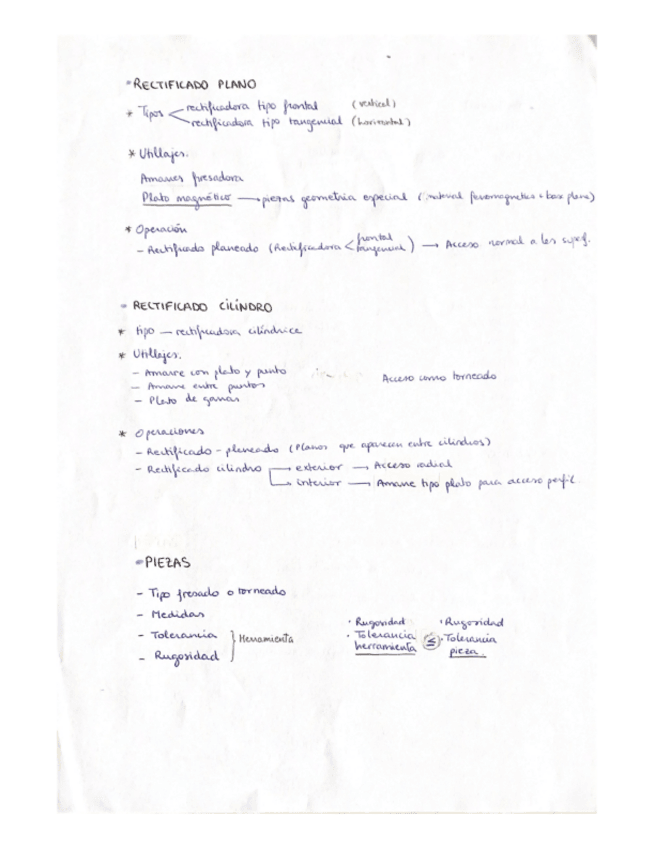 • RECTIFICADO PLANO
* Tipos < rectificadora tipo frontal (vertical)
rectificadora tipo tangencial (horizontal)
* Utillajes.
Amarres fresadora
Plato magnético → piezas geometria especial (material ferromagnetico + base plana)
* Operación
- Rectificado planeado (Rectificadora < frontal
tangencial) → Acceso normal a las superf.
• RECTIFICADO CILÍNDRO
* tipo — rectificadora cilíndrica
* Utillajes.
- Amarre con plato y punto
- Amarre entre puntos Acceso como torneado
- Plato de garras
* Operaciones
- Rectificado - planeado (Planos que aparecen entre cilindros)
- Rectificado cilindro → exterior → Acceso radial
→ interior → Amarre tipo plato para acceso perfil.
• PIEZAS
- Tipo fresado o torneado
- Medidas
- Tolerancia } Herramienta
- Rugosidad
· Rugosidad · Rugosidad
· Tolerancia ≤ · Tolerancia
herramienta pieza.